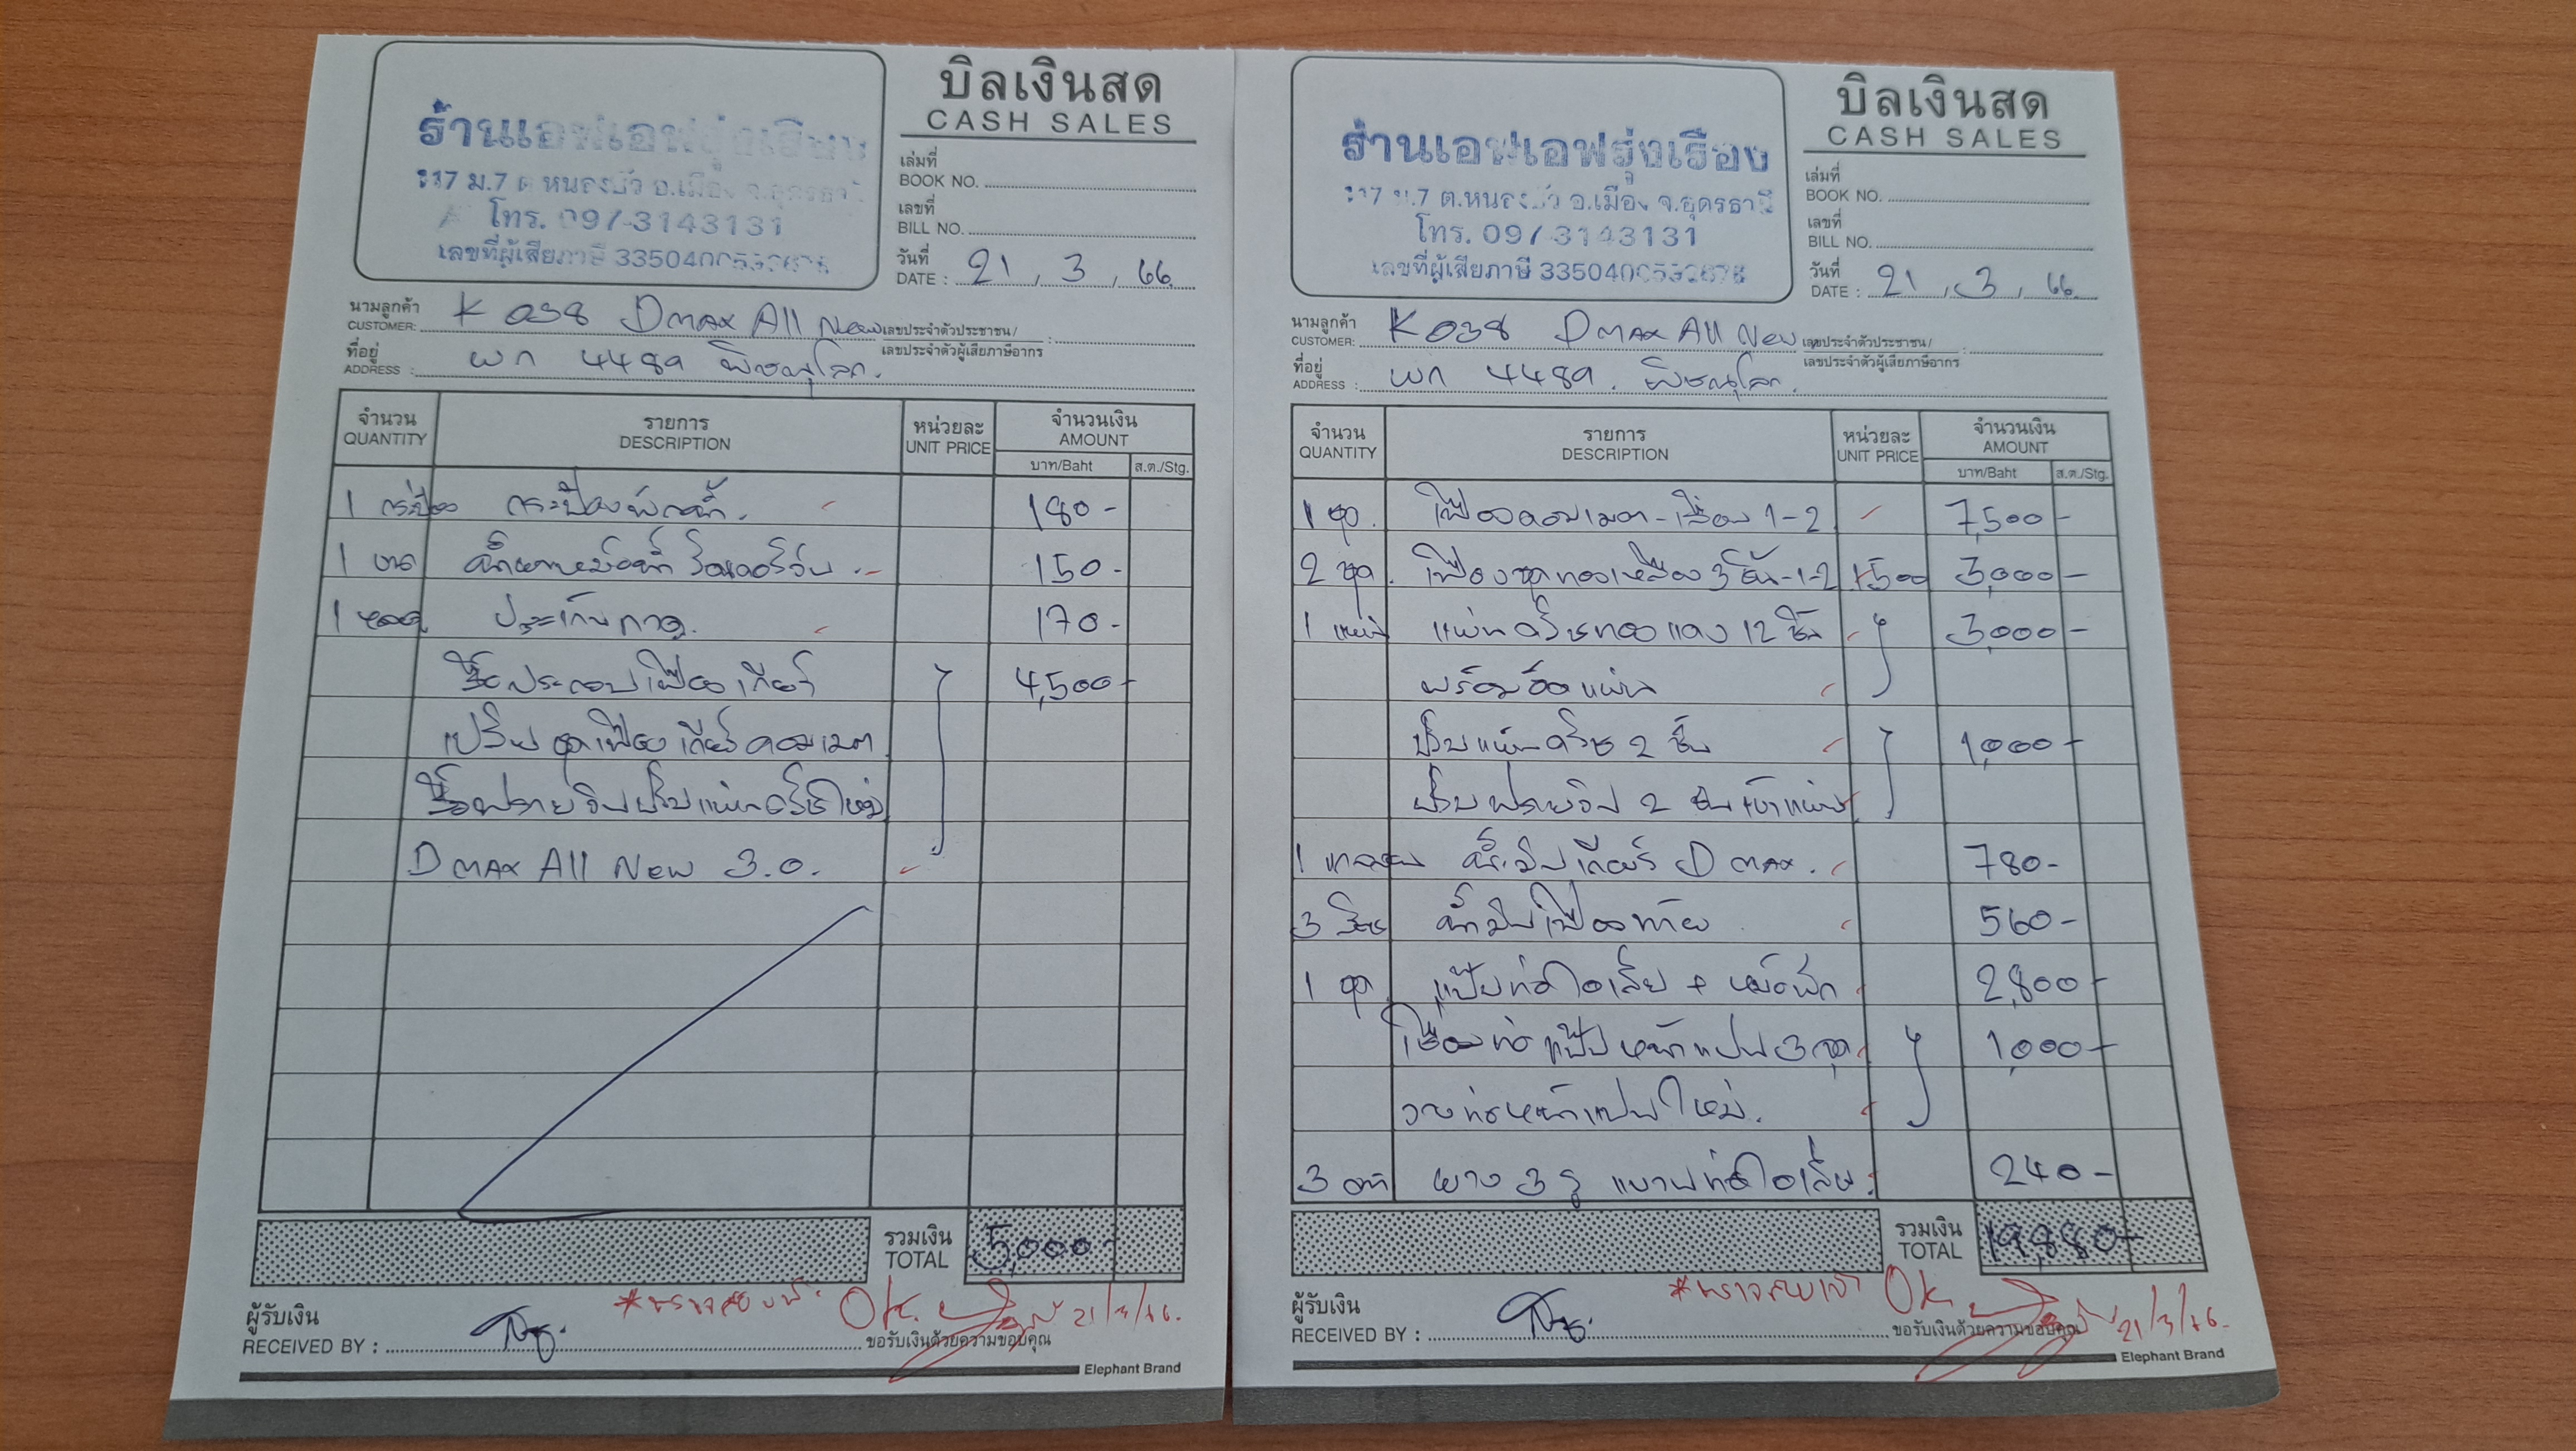 ร้านเอฟเอฟรุ่งเรือง
ม.7 ต.หนองบัว อ.เมือง จ.อุดรธานี
โทร. 097-3143131
เลขที่ผู้เสียภาษี
บิลเงินสด
CASH SALES
เล่มที่
BOOK NO.
เลขที่
BILL NO.
วันที่
DATE : 21 , 3 , 66
นามลูกค้า
CUSTOMER: K 038 DMAX All New
เลขประจำตัวประชาชน/
เลขประจำตัวผู้เสียภาษีอากร :
ที่อยู่
ADDRESS : ผก 4489 พิษณุโลก.
จำนวน รายการ หน่วยละ จำนวนเงิน
QUANTITY DESCRIPTION UNIT PRICE AMOUNT
บาท/Baht ส.ต./Stg.
1 กระป๋อง กระป๋องพักน้ำ. 180-
1 ขวด น้ำยาหม้อน้ำ 150-
1 หลอด ประเก็นกาว. 170-
รื้อประกอบเฟืองเกียร์ 4,500-
เปลี่ยนชุดเฟืองเกียร์คอมเมต
รื้อฟลายวีลปรับแผ่นคลัชใหม่
DMAX All New 3.0.
รวมเงิน
TOTAL 5,000-
ผู้รับเงิน
RECEIVED BY :
OK 21/3/66.
ขอรับเงินด้วยความขอบคุณ
Elephant Brand
ร้านเอฟเอฟรุ่งเรือง
ม.7 ต.หนองบัว อ.เมือง จ.อุดรธานี
โทร. 097-3143131
เลขที่ผู้เสียภาษี
บิลเงินสด
CASH SALES
เล่มที่
BOOK NO.
เลขที่
BILL NO.
วันที่
DATE : 21 , 3 , 66
นามลูกค้า
CUSTOMER: K038 DMAX All New
เลขประจำตัวประชาชน/
เลขประจำตัวผู้เสียภาษีอากร :
ที่อยู่
ADDRESS : ผก 4489. พิษณุโลก.
จำนวน รายการ หน่วยละ จำนวนเงิน
QUANTITY DESCRIPTION UNIT PRICE AMOUNT
บาท/Baht ส.ต./Stg.
1 ชุด. เฟืองคอมเมต-เฟือง 1-2 7,500-
2 ชุด. เฟืองชุดทองเหลือง 3 ชั้น-1-2 1500 3,000-
1 แผ่น แผ่นคลัชทองแดง 12 นิ้ว 3,000-
พร้อมอัดแผ่น
ปรับแผ่นคลัช 2 ชั้น 1,000-
ปรับฟลายวีล 2 ชั้น
1 แกลลอน น้ำมันเกียร์ D max. 780-
3 ลิตร น้ำมันเฟืองท้าย 560-
1 ชุด แป๊ปท่อไอเสีย + หม้อพัก 2,800-
เชื่อมท่อแป๊ปหน้าแปน 3 จุด 1,000-
วางท่อหน้าแปนใหม่.
3 อัน ยาง 3 รู แขวนท่อไอเสีย. 240-
รวมเงิน
TOTAL 19,880-
ผู้รับเงิน
RECEIVED BY :
OK 21/3/66.
ขอรับเงินด้วยความขอบคุณ
Elephant Brand